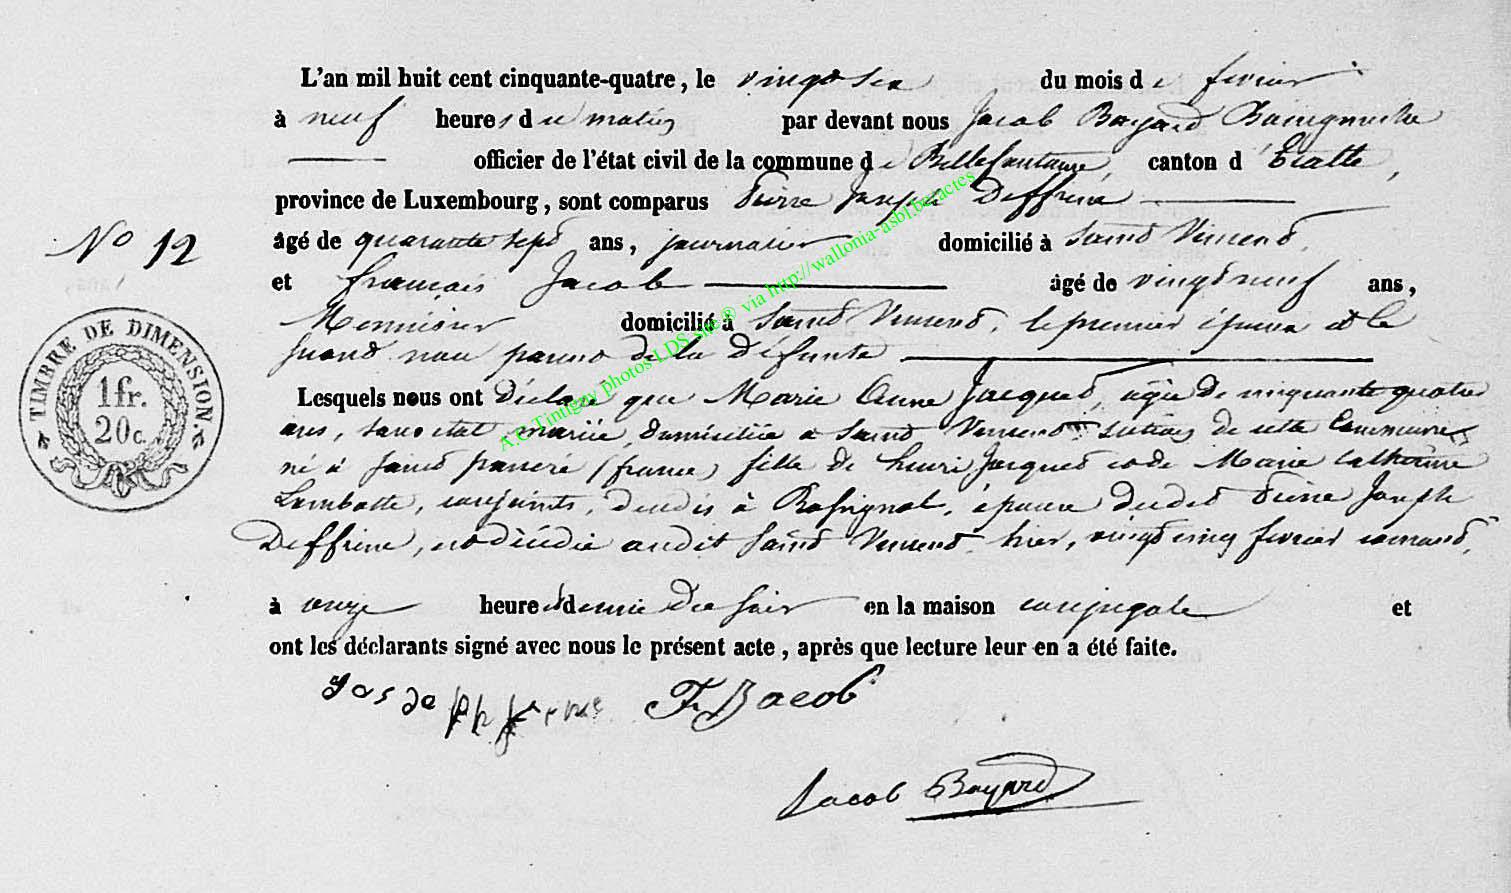 L'an mil huit cent cinquante-quatre, le vingt six du mois de fevrier
à neuf heures du matin par devant nous Jacob Bayard Bourgmestre
officier de l'état civil de la commune de Bellefontaine, canton d'Etalle,
province de Luxembourg, sont comparus Pierre Joseph Deffrene
No 12
âgé de quarante sept ans, journalier domicilié à Saint Vincent,
et françois Jacob âgé de vingt neuf ans,
Mennisier domicilié à Saint Vincent, le premier époux et le
second non parent de la défunte
TIMBRE DE DIMENSION.
1fr.
20c.
Lesquels nous ont déclaré que Marie Anne Jacques, agée de cinquante quatre
ans, sans etat mariée, domiciliée à Saint Vincent section de cette Commune
né à Saint (france) fille de henri Jacques et de Marie Catherine
Lambotte, conjoints, décédés à Rossignol, épouse dudit Pierre Joseph
Deffrene, est décédée audit Saint Vincent hier, vingt cinq fevrier courant,
à onze heures et demie du soir en la maison conjugale et
ont les déclarants signé avec nous le présent acte, après que lecture leur en a été faite.
F. Jacob
Jacob Bayard
A.C. Tintigny photos LDS site ® via http://wallonia-asbl.be/actes